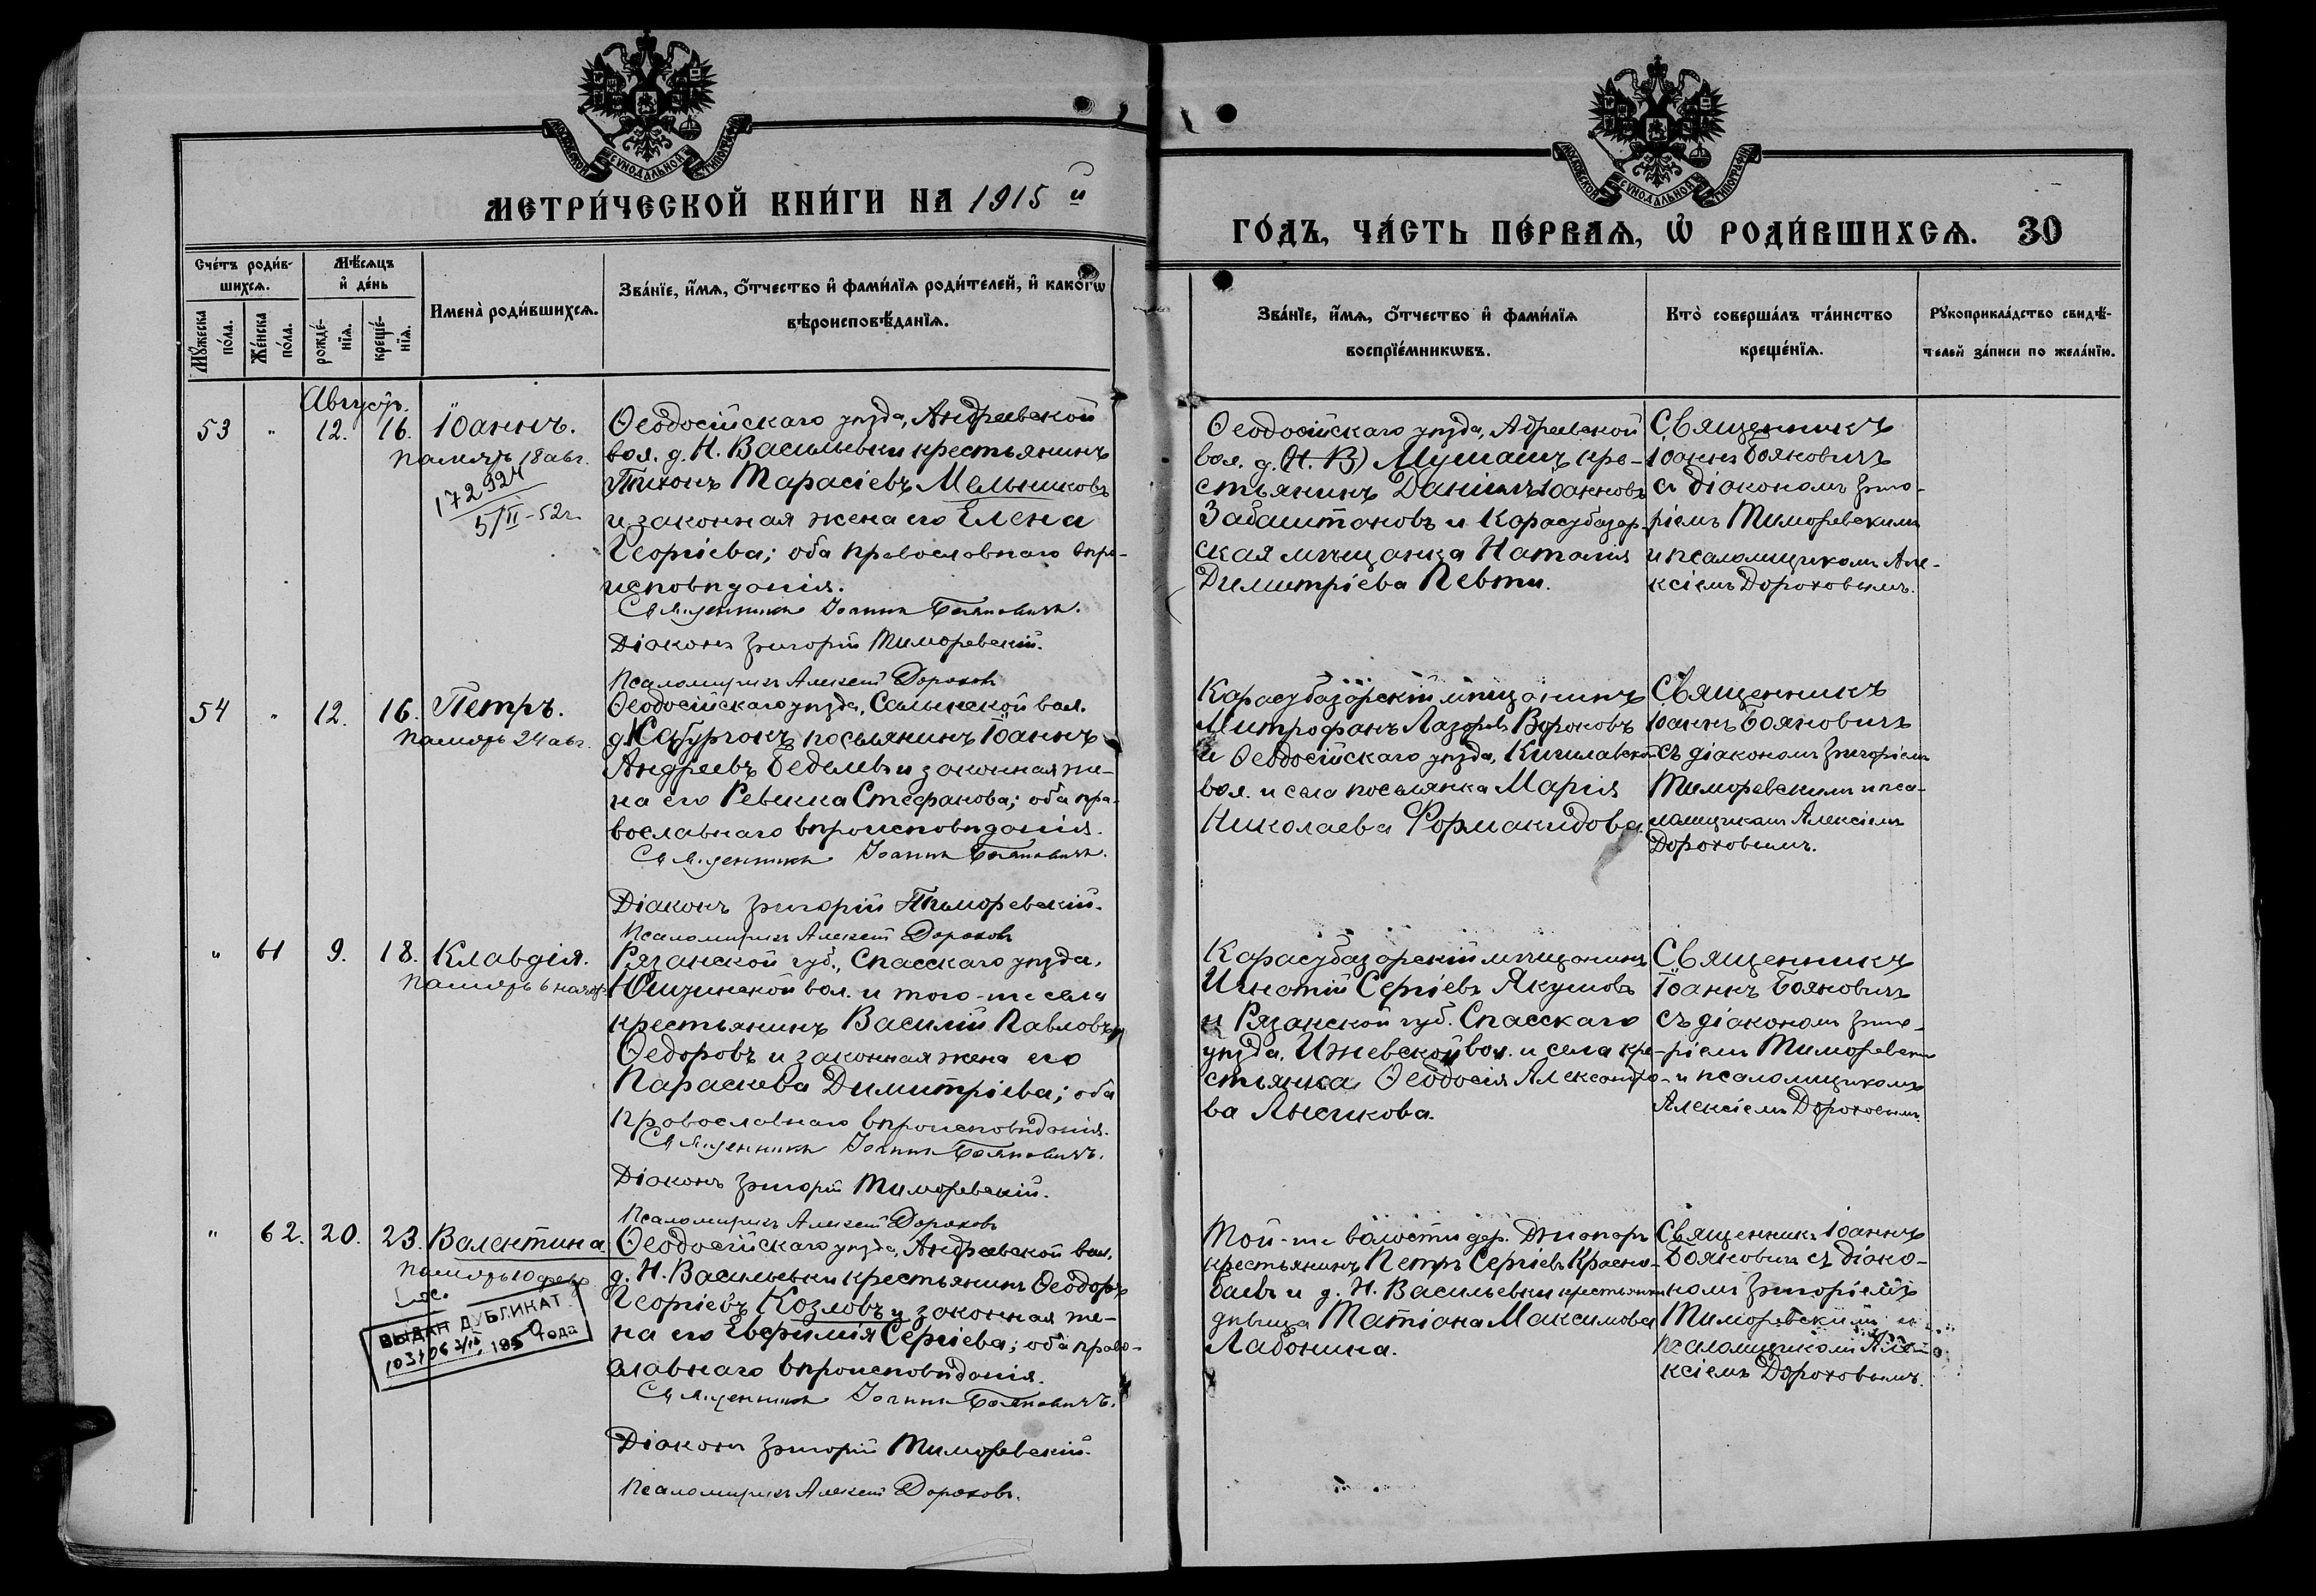 МОСКОВСКОЙ СѴНОДАЛЬНОЙ ТИПОГРАФІИ
МЕТРИ́ЧЕСКОЙ КНИ́ГИ НА 1915 й
Сче́тъ роди́в-
шихсѧ.
Мѣ́сѧцъ
и҆ де́нь
Мꙋ́жеска
по́ла.
Же́нска
по́ла.
рожде́-
нїѧ.
креще́-
нїѧ.
Имена̀ роди́вшихсѧ.
Зва́нїе, и҆́мѧ, ѻ҆́тчество и҆ фами́лїѧ роди́телей, и҆ како́гѡ
вѣроисповѣ́данїѧ.
Августъ.
53 " 12. 16. Іоаннъ.
Память 18 авг.
172924
5/II-52г.
Ѳеодосійскаго уѣзда, Андреевской
вол. д. Н. Васильевки крестьянинъ
Тихонъ Тарасіевъ Мельниковъ
и законная жена его Елена
Георгіева; оба православнаго вѣро-
исповѣданія.
Священникъ Іоаннъ Бояновичъ.
Діаконъ Григорій Тиморевскій.
Псаломщикъ Алексій Дороховъ
54 " 12. 16. Петръ.
Память 24 авг.
Ѳеодосійскаго уѣзда, Салынской вол.
д. Кабурганъ поселянинъ Іоаннъ
Андреевъ Беделевъ и законная же-
на его Ревекка Стефанова; оба пра-
вославнаго вѣроисповѣданія.
Священникъ Іоаннъ Бояновичъ.
Діаконъ Григорій Тиморевскій.
Псаломщикъ Алексій Дороховъ
" 61 9. 18. Клавдія.
Память 6 ноябр.
Рязанской губ., Спасскаго уѣзда,
вол. и того-же села
крестьянинъ Василій Павловъ
Ѳедоровъ и законная жена его
Параскева Димитріева; оба
православнаго вѣроисповѣданія.
Священникъ Іоаннъ Бояновичъ.
Діаконъ Григорій Тиморевскій.
Псаломщикъ Алексій Дороховъ
" 62. 20. 23. Валентина
Память 10 февр.
ВЫДАН ДУБЛИКАТ
1950 года
Ѳеодосійскаго уѣзда, Андреевской вол.
д. Н. Васильевки крестьянинъ Ѳеодоръ
Георгіевъ Козловъ и законная же-
на его Евфимія Сергіева; оба право-
славнаго вѣроисповѣданія.
Священникъ Іоаннъ Бояновичъ.
Діаконъ Григорій Тиморевскій.
Псаломщикъ Алексій Дороховъ.
МОСКОВСКОЙ СѴНОДАЛЬНОЙ ТИПОГРАФІИ
ГО́ДЪ, ЧА́СТЬ ПЕ́РВАѦ, Ѡ҆ РОДИ́ВШИХСѦ. 30
Зва́нїе, и҆́мѧ, ѻ҆́тчество и҆ фами́лїѧ
воспрїе́мникѡвъ.
Кто̀ соверша́лъ та́инство
креще́нїѧ.
Рꙋкоприкла́дство свидѣ́-
телей за́писи по жела́нїю.
Ѳеодосійскаго уѣзда, Адреевской
вол. д. (Н. В) Мушашъ кре-
стьянинъ Даніилъ Іоанновъ
Забаштановъ и Карасубазар-
ская мѣщанка Наталія
Димитріева Певти.
Священникъ
Іоаннъ Бояновичъ
съ діакономъ Григо-
ріемъ Тиморевскимъ
и псаломщикомъ Але-
ксіемъ Дороховымъ.
Карасубазарскій мѣщанинъ
Митрофанъ Лазаревъ Вороновъ
и Ѳеодосійскаго уѣзда, Кишлавской
вол. и села поселянка Марія
Николаева Формакидова
Священникъ
Іоаннъ Бояновичъ
съ діакономъ Григоріемъ
Тиморевскимъ и пса-
ломщикомъ Алексіемъ
Дороховымъ.
Карасубазарскій мѣщанинъ
Игнатій Сергіевъ Якушовъ
и Рязанской губ. Спасскаго
уѣзда, Ижевской вол. и села кре-
стьянка Ѳеодосія Александро-
ва Лысикова.
Священникъ
Іоаннъ Бояновичъ
съ діакономъ Григо-
ріемъ Тиморевским
и псаломщикомъ
Алексіемъ Дороховымъ.
Той-же волости дер. Джапаръ
крестьянинъ Петръ Сергіевъ Красно-
баевъ и д. Н. Васильевки крестьянка
дѣвица Татіана Максимова
Лабонина.
Священникъ Іоаннъ
Бояновичъ съ діако-
номъ Григоріемъ
Тиморевскимъ и
псаломщикомъ Але-
ксіемъ Дороховымъ.